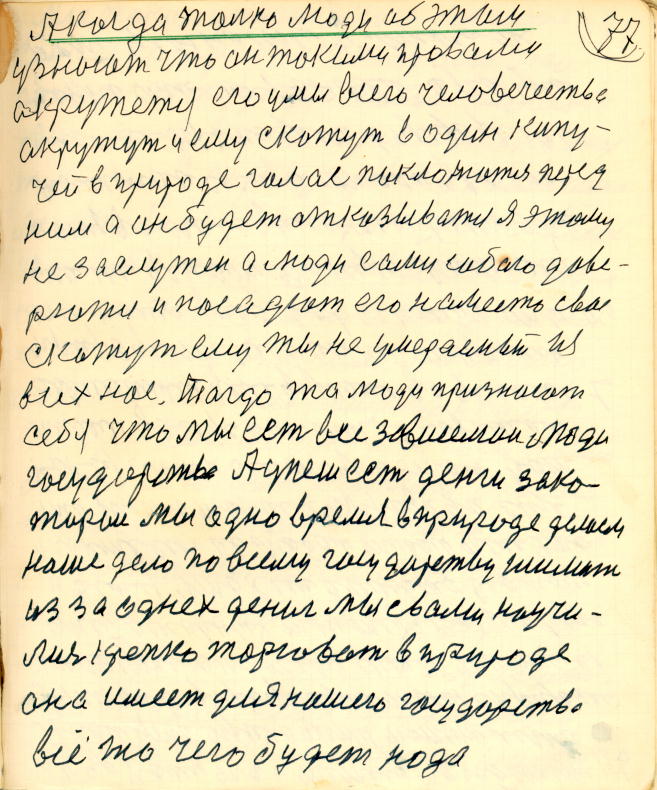 А когда толко люди об этом
77
узнают что он такими правами
акружети его умы всего человечества
акружут и ему скажут в один кипу-
чей в природе голас поклонятся перед
ним а он будет отказыватся я этому
не заслужен а люди сами собою дове-
рятся и посадют его на место свае
скажут ему ты не умераемый из
всех нас. Тагдо та люди признают
себя что мы ест все зависемаи люди
государства А у неи ест денги зако-
тораи мы одно время в природе делаем
наше дело по всему государству шимат
из за однех денег мы свами научи-
лися крепко торговат в природе
она имеет для нашего государства
всё то чего будет нада